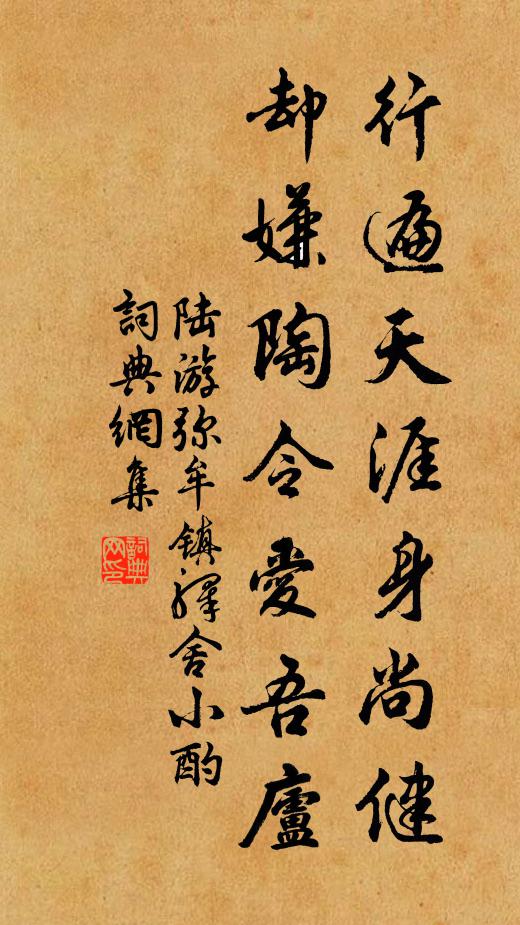 行遍天涯身尚健
却嫌陶令愛吾廬
陆游弥牟镇驿舍小酌
詞典網集
詞典网印